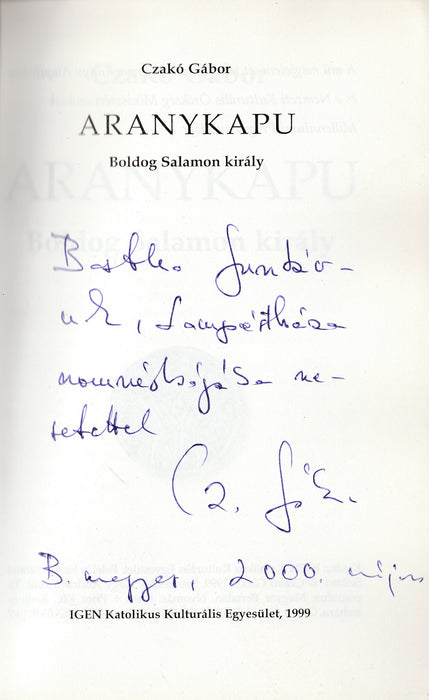 Czakó Gábor
ARANYKAPU
Boldog Salamon király
Bartha Gusztáv-
nak,
szomszédságába sze-
retettel
Cz. Gá
B. megyer, 2000. május
IGEN Katolikus Kulturális Egyesület, 1999